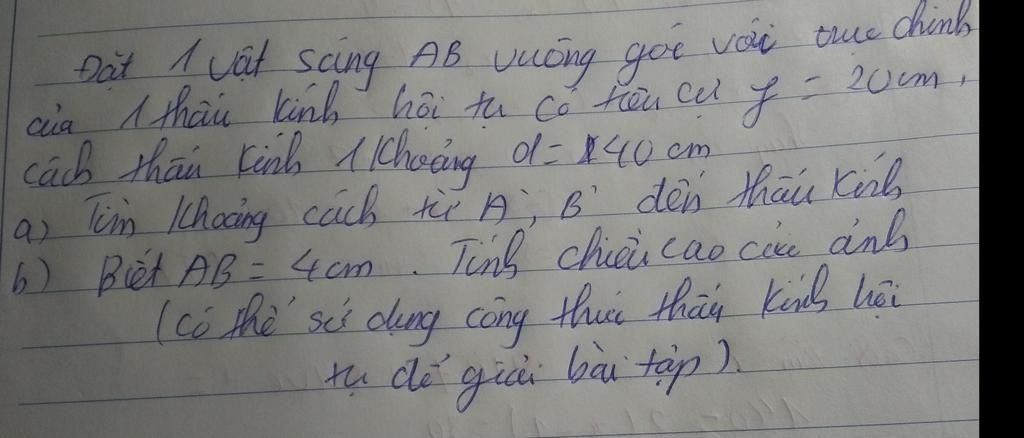 Đặt 1 vật sáng AB vuông góc với trục chính
của 1 thấu kính hội tụ có tiêu cự f = 20cm,
cách thấu kính 1 khoảng d = 40 cm
a) Tìm khoảng cách từ A', B' đến thấu kính
b) Biết AB = 4cm. Tính chiều cao của ảnh
(có thể sử dụng công thức thấu kính hội
tụ để giải bài tập).